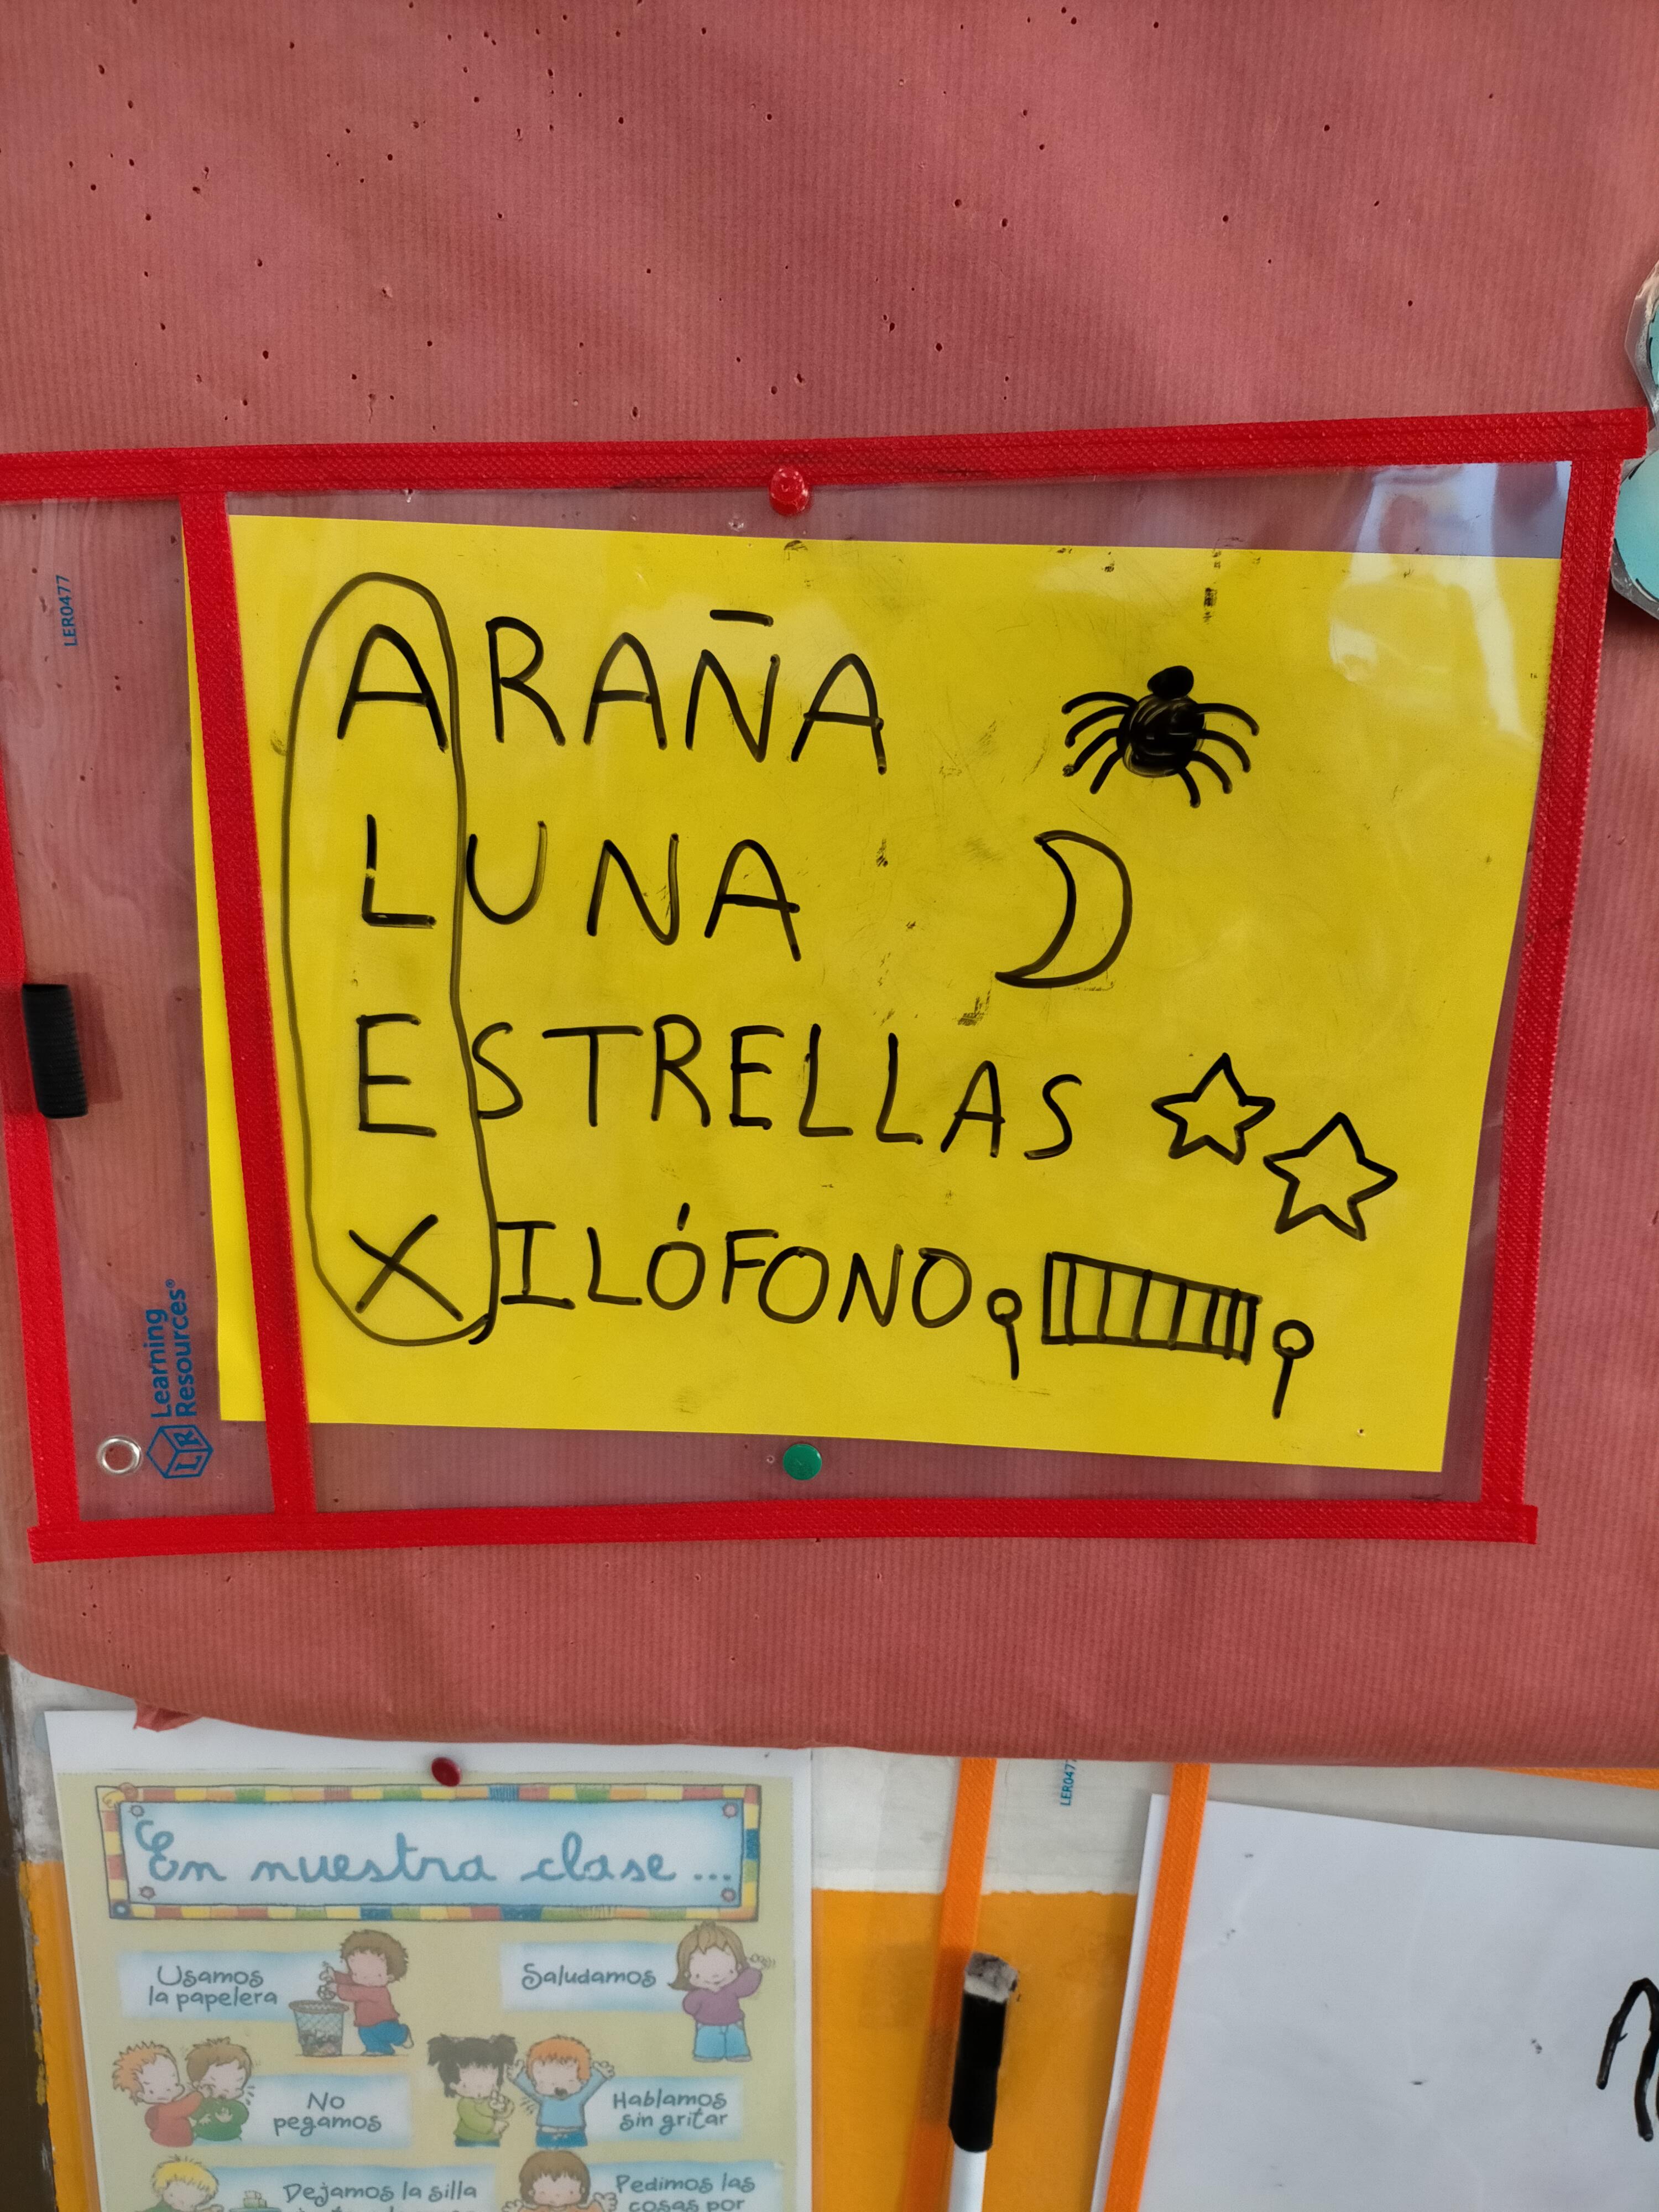 ARAÑA
LUNA
ESTRELLAS
XILÓFONO
LER0477
Learning
Resources®
LR
En nuestra clase...
Usamos
la papelera
Saludamos
No
pegamos
Hablamos
sin gritar
Dejamos la silla
Pedimos las
cosas por